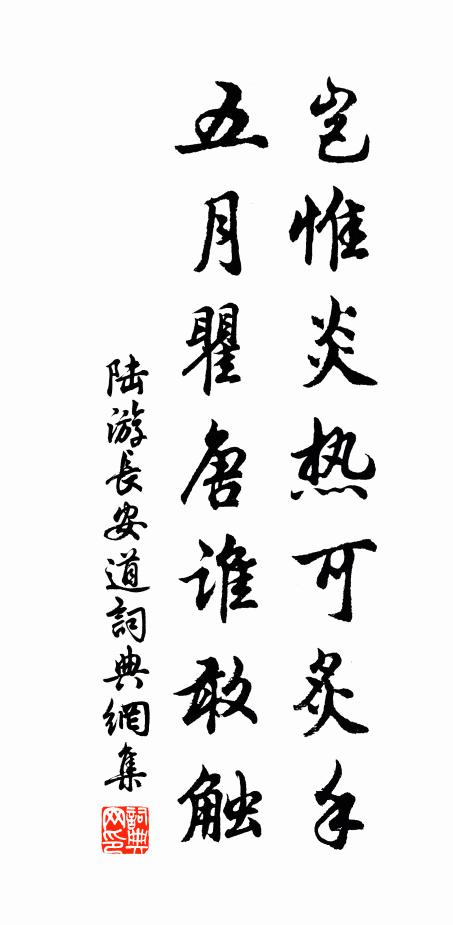 岂惟炎热可炙手
五月瞿唐谁敢触
陆游长安道词典網集
詞典网印